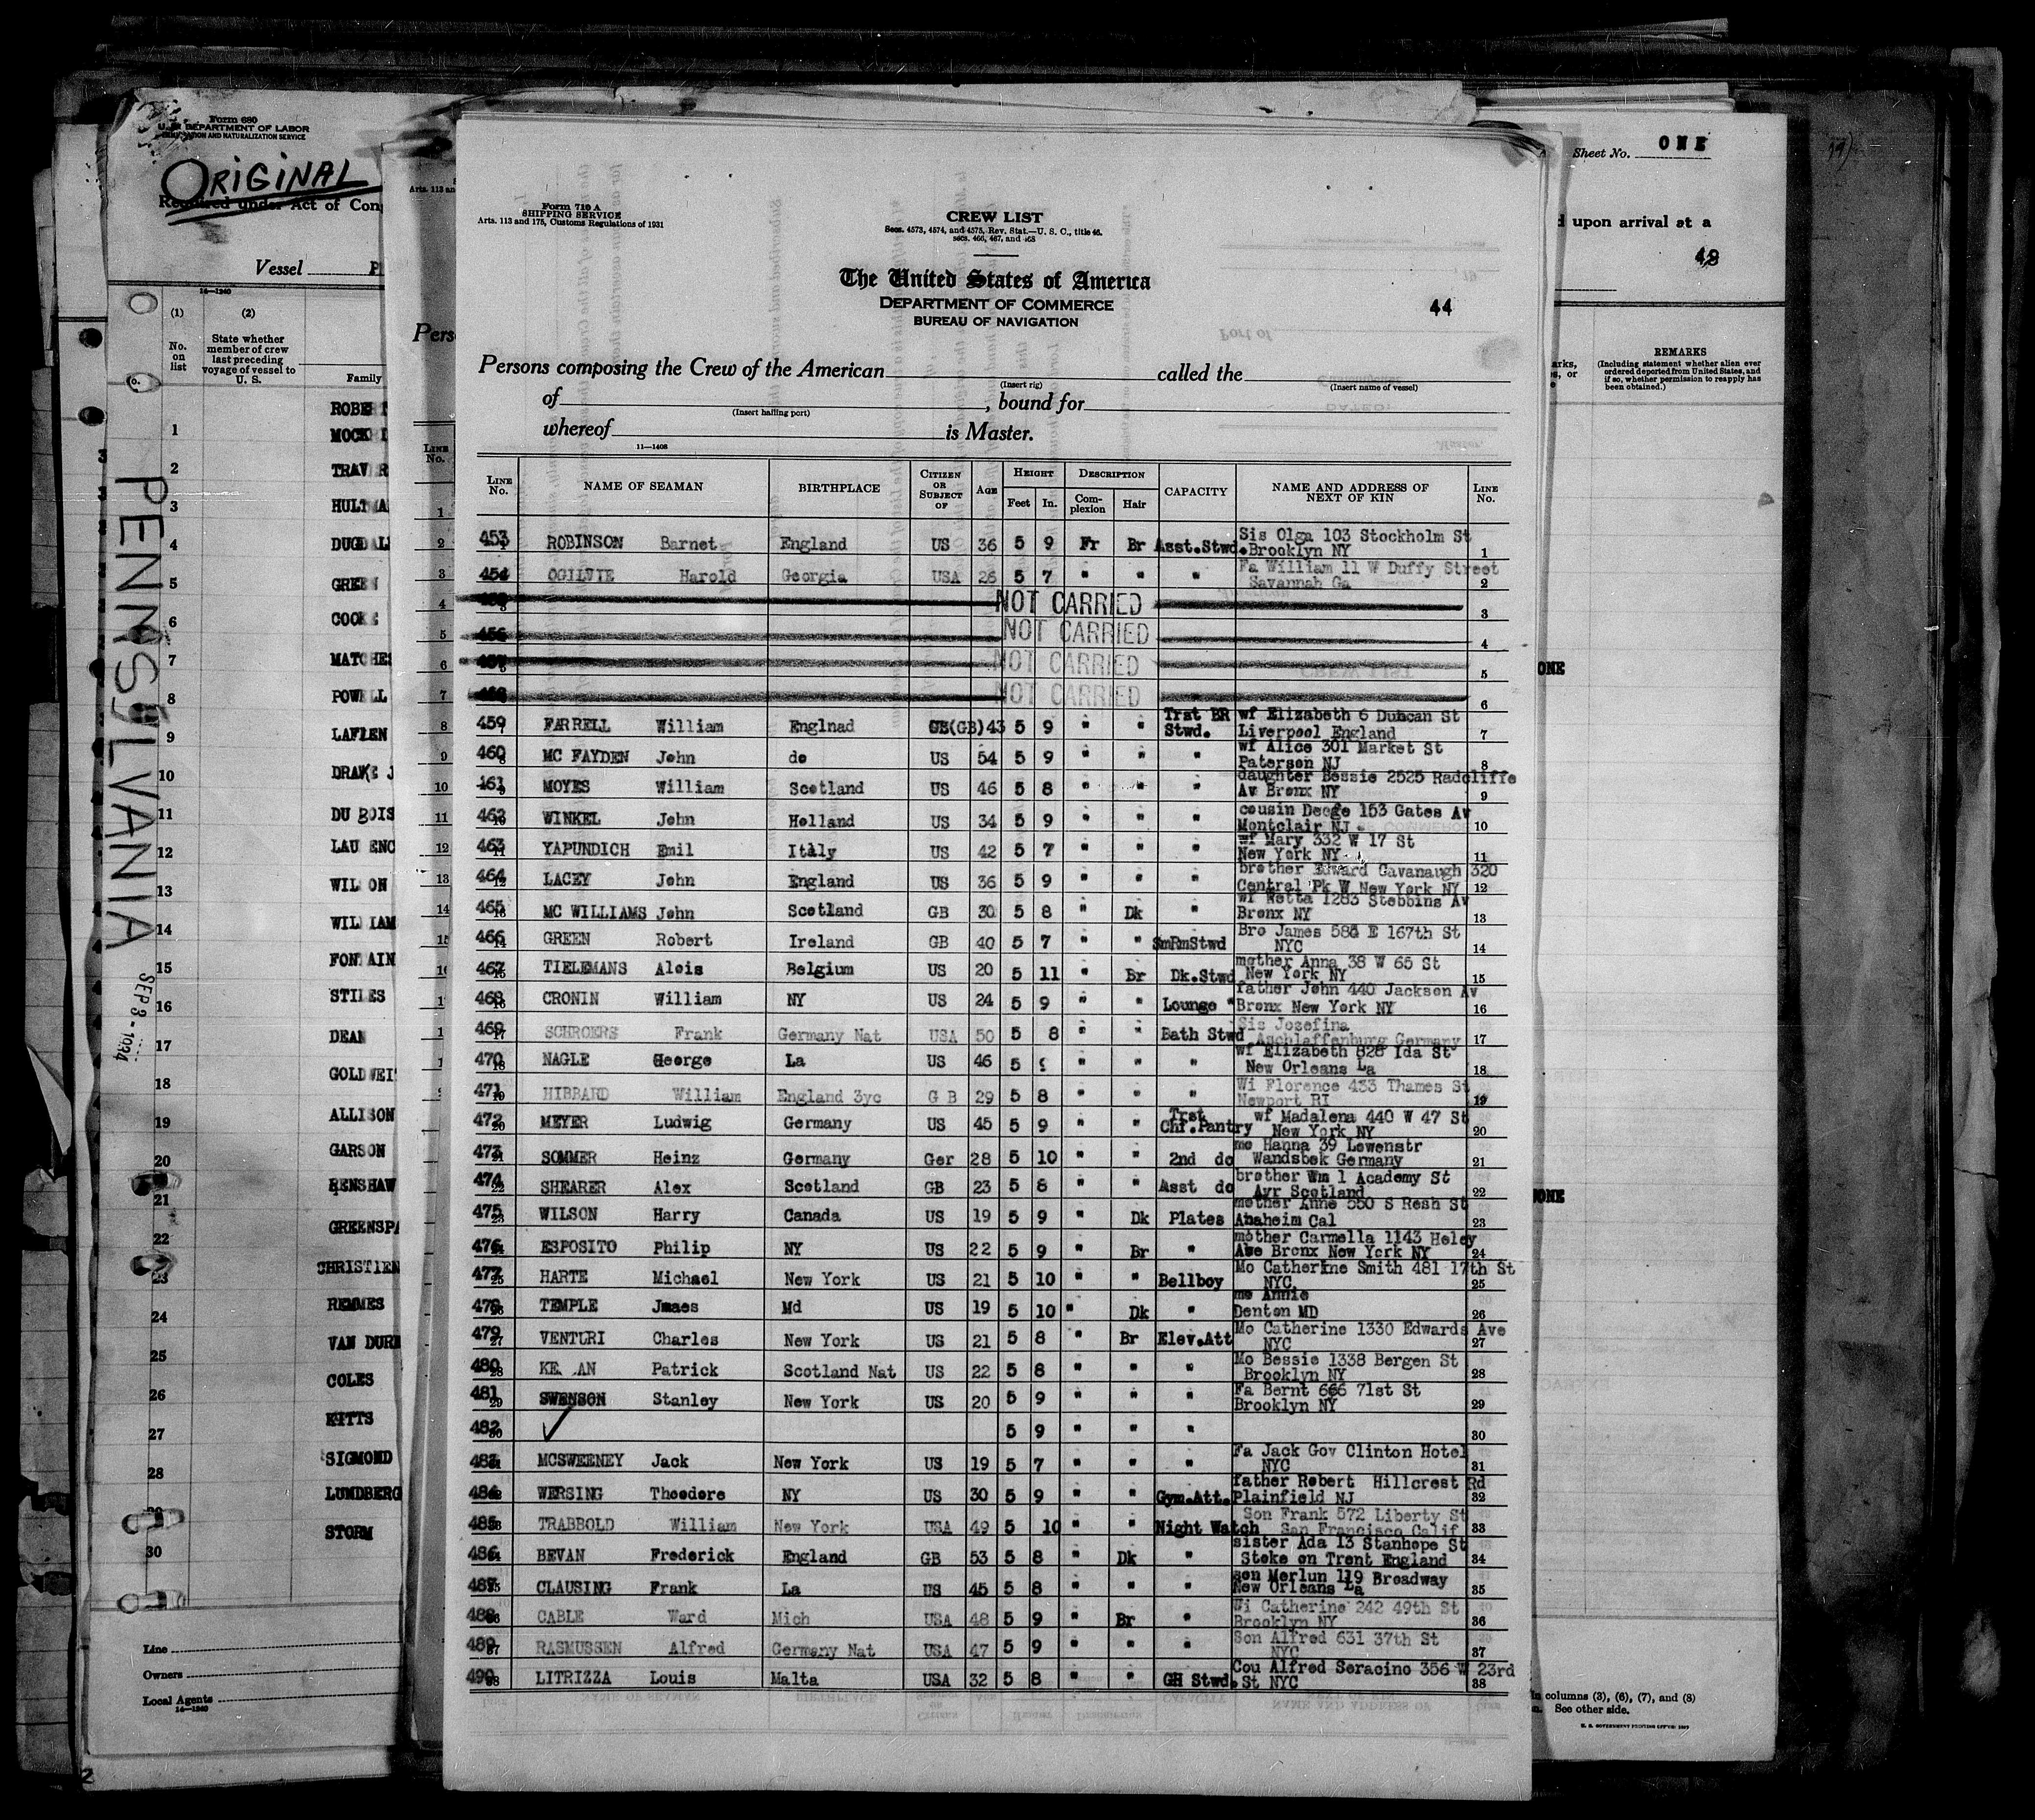 Form 680
U. S. DEPARTMENT OF LABOR
IMMIGRATION AND NATURALIZATION SERVICE
ORIGINAL
Required under Act of Con
Vessel P
14—1240
(1)
(2)
No. on list
State whether member of crew last preceding voyage of vessel to U. S.
Family
1
2
3
4
5
6
7
8
9
10
11
12
13
14
15
16
17
18
19
20
21
22
23
24
25
26
27
28
30
MATCHES
POWELL
DEAN
ALLISON
GARSON
RENSHAW
GREENSPA
CHRISTIEN
REMMES
VAN DURE
COLES
KITTS
SIGMOND
LUNDBERG
STORM
PENNSYLVANIA
SEP 3 - 1934
Line
Owners
Local Agents
14—1240
Form 710 A
SHIPPING SERVICE
Arts. 113 and 175, Customs Regulations of 1931
CREW LIST
Secs. 4573, 4574, and 4575, Rev. Stat.—U. S. C., title 46, secs. 466, 467, and 468
The United States of America
DEPARTMENT OF COMMERCE
BUREAU OF NAVIGATION
44
Persons composing the Crew of the American called the
(Insert rig) (Insert name of vessel)
of , bound for
(Insert hailing port)
whereof is Master.
11—1408
LINE No. NAME OF SEAMAN BIRTHPLACE CITIZEN OR SUBJECT OF AGE HEIGHT Feet In. DESCRIPTION Complexion Hair CAPACITY NAME AND ADDRESS OF NEXT OF KIN LINE No.
453 ROBINSON Barnet England US 36 5 9 Fr Br Asst.Stwd. Sis Olga 103 Stockholm St Brooklyn NY 1
454 OGILVIE Harold Georgia USA 26 5 7 " " " Fa William 11 W Duffy Street Savannah Ga 2
NOT CARRIED 3
456 NOT CARRIED 4
457 NOT CARRIED 5
NOT CARRIED 6
459 FARRELL William Englnad GB(GB) 43 5 9 " " Trst BR Stwd. wf Elizabeth 6 Duncan St Liverpool England 7
460 MC FAYDEN John do US 54 5 9 " " " wf Alice 301 Market St Paterson NJ 8
461 MOYES William Scotland US 46 5 8 " " " daughter Bessie 2525 Radcliffe Av Bronx NY 9
462 WINKEL John Holland US 34 5 9 " " " cousin Deege 153 Gates Av Montclair NJ 10
463 YAPUNDICH Emil Italy US 42 5 7 " " " wf Mary 332 W 17 St New York NY 11
464 LACEY John England US 36 5 9 " " " brother Edward Cavanaugh 320 Central Pk W New York NY 12
465 MC WILLIAMS John Scotland GB 30 5 8 " Dk " wf Netta 1283 Stebbins Av Bronx NY 13
466 GREEN Robert Ireland GB 40 5 7 " " SmRmStwd Bro James 586 E 167th St NYC 14
467 TIELEMANS Alois Belgium US 20 5 11 " Br Dk.Stwd mother Anna 38 W 65 St New York NY 15
468 CRONIN William NY US 24 5 9 " " Lounge " father John 440 Jackson Av Bronx New York NY 16
469 SCHROERS Frank Germany Nat USA 50 5 8 " " Bath Stwd Sis Jozefina Aschlaffenburg Germany 17
470 NAGLE George La US 46 5 9 " " " wf Elizabeth 828 Ida St New Orleans La 18
471 HIBBARD William England 3yc G B 29 5 8 " " " Wi Florence 433 Thames St Newport RI 19
472 MEYER Ludwig Germany US 45 5 9 " " Trst Chf.Pantry wf Madalena 440 W 47 St New York NY 20
473 SOMMER Heinz Germany Ger 28 5 10 " " 2nd do mo Hanna 39 Lowenstr Wandsbek Germany 21
474 SHEARER Alex Scotland GB 23 5 8 " " Asst do brother Wm 1 Academy St Ayr Scotland 22
475 WILSON Harry Canada US 19 5 9 " Dk Plates mother Anne 550 S Resh St Anaheim Cal 23
476 ESPOSITO Philip NY US 22 5 9 " Br " mother Carmella 1143 Holey Ave Bronx New York NY 24
477 HARTE Michael New York US 21 5 10 " " Bellboy Mo Catherine Smith 481 17th St NYC 25
478 TEMPLE Jmaes Md US 19 5 10 " Dk " mo Annie Denton MD 26
479 VENTURI Charles New York US 21 5 8 " Br Elev.Att Mo Catherine 1330 Edwards Ave NYC 27
480 Patrick Scotland Nat US 22 5 8 " " " Mo Bessie 1338 Bergen St Brooklyn NY 28
481 SWENSON Stanley New York US 20 5 9 " " " Fa Bernt 666 71st St Brooklyn NY 29
482 5 9 " " " 30
483 MCSWEENEY Jack New York US 19 5 7 " " " Fa Jack Gov Clinton Hotel NYC 31
484 WERSING Theodore NY US 30 5 9 " " Gym.Att. father Robert Hillcrest Rd Plainfield NJ 32
485 TRABBOLD William New York USA 49 5 10 " " Night Watch Son Frank 572 Liberty St San Francisco Calif 33
486 BEVAN Frederick England GB 53 5 8 " Dk " sister Ada 13 Stanhope St Stoke on Trent England 34
487 CLAUSING Frank La US 45 5 8 " " " son Merlun 119 Broadway New Orleans La 35
488 CABLE Ward Mich USA 48 5 9 " Br " Wi Catherine 242 49th St Brooklyn NY 36
489 RASMUSSEN Alfred Germany Nat USA 47 5 9 " " " Son Alfred 631 37th St NYC 37
490 LITRIZZA Louis Malta USA 32 5 8 " " GH Stwd. Cou Alfred Seracino 356 W 23rd St NYC 38
Sheet No. ONE
d upon arrival at a
REMARKS
(Including statement whether alien ever ordered deported from United States, and if so, whether permission to reapply has been obtained.)
ONE
in columns (3), (6), (7), and (8)
See other side.
U. S. GOVERNMENT PRINTING OFFICE